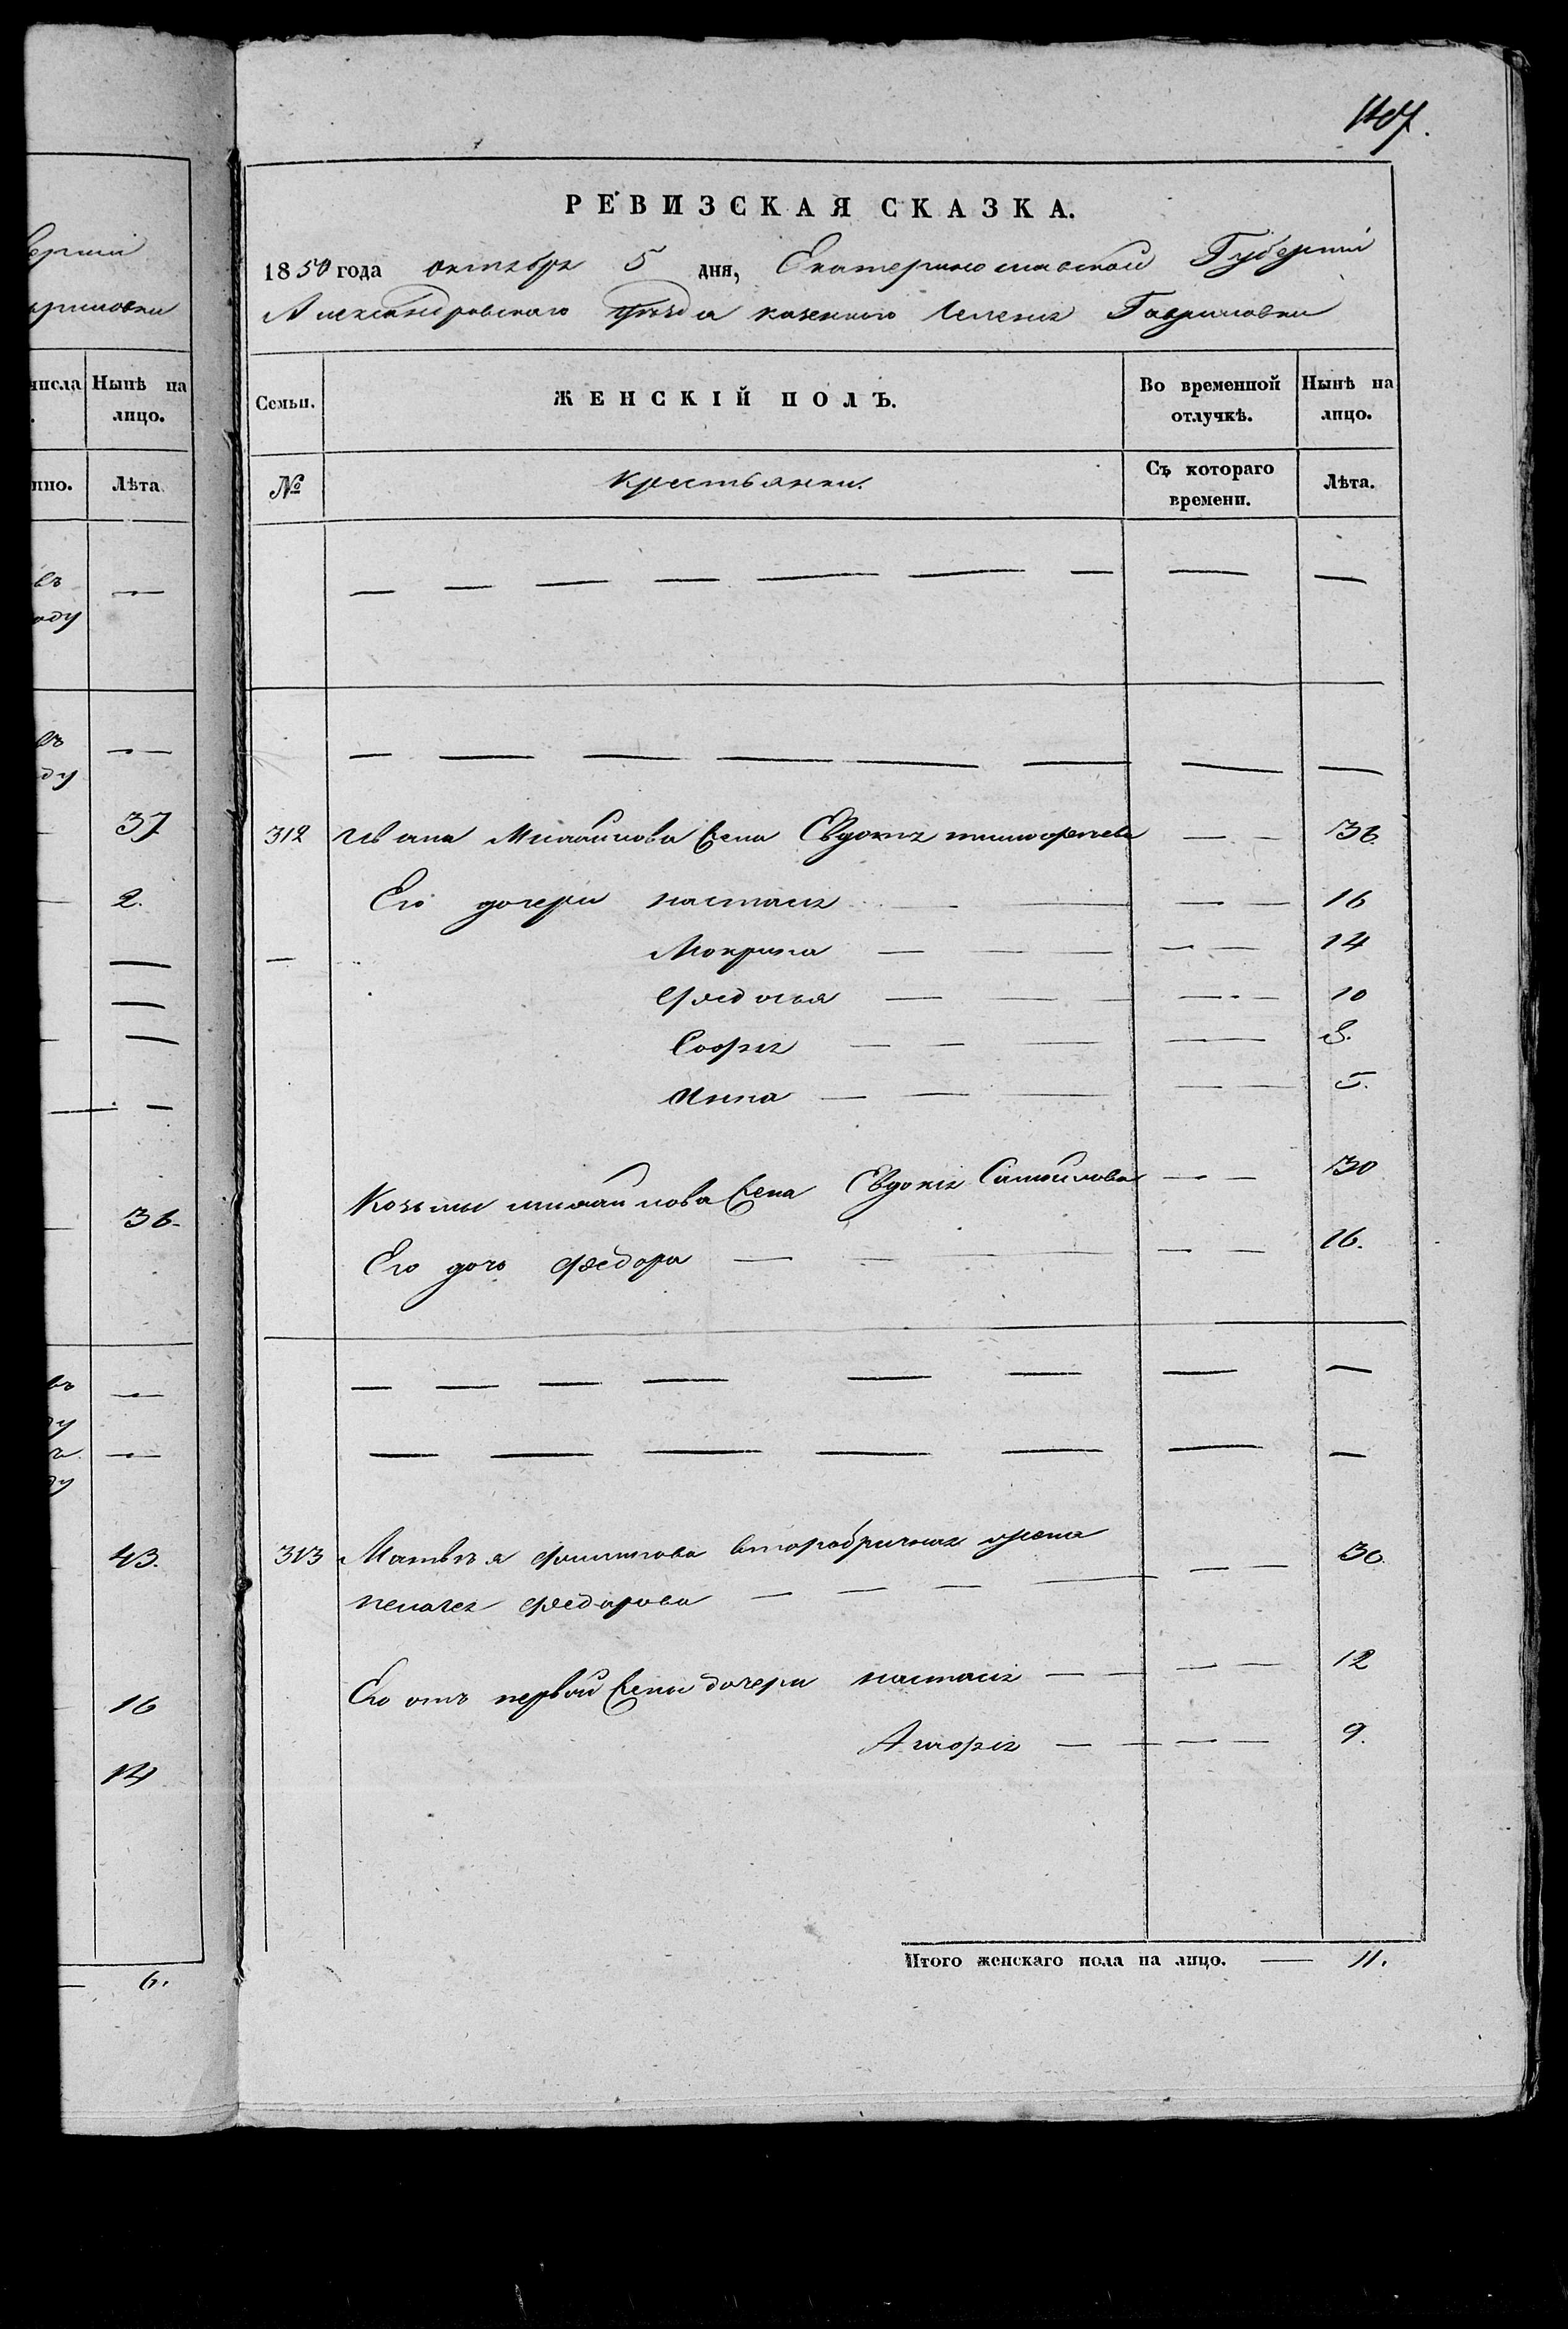 РЕВИЗСКАЯ СКАЗКА.
1850 года октября 5 дня, Екатеринославской Губерніи
Александровского уѣзда казенного селенія Гавриловки
Семьи. ЖЕНСКІЙ ПОЛЪ. Во временной отлучкѣ. Нынѣ на лицо.
№ Крестьянки. Съ котораго времени. Лѣта.
312 Ивана Михайлова жена Евдокія тимофеева — — 36.
Его дочери настасія — — — — 16
— Мокрина — — — — — 14
Федосья — — — — — 10
Софія — — — — — 8.
Анна — — — — — 5.
Козьмы михайлова жена Евдокія Самойлова — — 30
Его дочь Федора — — — — — 16.
313 Матвѣя филипова второбрачная жена
пелагея федорова — — — — — — 30.
Его отъ первой жены дочери настасія — — — — 12
Агафія — — — — 9.
Итого женскаго пола на лицо. — 11.
ерніи
вриловки
числа Нынѣ на лицо.
нно. Лѣта.
въ —
оду
въ —
ду
37
2.
36.
въ —
ду
ду
43.
16
14
6.